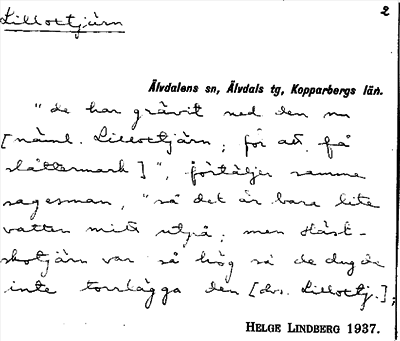 Lillottjärn
2
Älvdalens sn, Älvdals tg, Kopparbergs län.
"de har grävit ned den nu
[näml. Lillottjärn; för att få
slåttermark]", förtäljer samme
sagesman, "så det är bara lite
vatten mitt utpå; men Häst-
skotjärn var så hög så de dugde
inte torrlägga den [dvs. Lillottj.];
HELGE LINDBERG 1937.